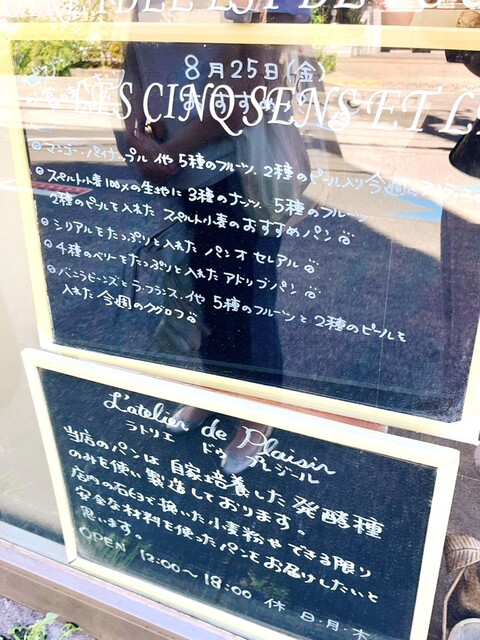 8月25日(金)
おすすめパン
LES CINQ SENS ET L
マンゴー、パイナップル や 5種のフルーツ、2種のピール入り 今週の
スペルト小麦100%の生地に 3種のナッツ、5種のフルーツ
2種のピールを入れた スペルト小麦のおすすめパン
シリアルをたっぷりと入れた パン オ セレアル
4種のベリーをたっぷりと入れた アドリブパン
バニラビーンズとラ・フランス、や 5種のフルーツと 2種のピールを
入れた 今週のクグロフ
L'atelier de Plaisir
ラトリエ ドゥ プレジール
当店のパンは 自家培養した 発酵種
のみを使い 製造しております。
店内の石臼で挽いた小麦粉や できる限り
安全な材料を使ったパンをお届けしたいと
思います。
OPEN 12:00〜18:00 休 日・月・木